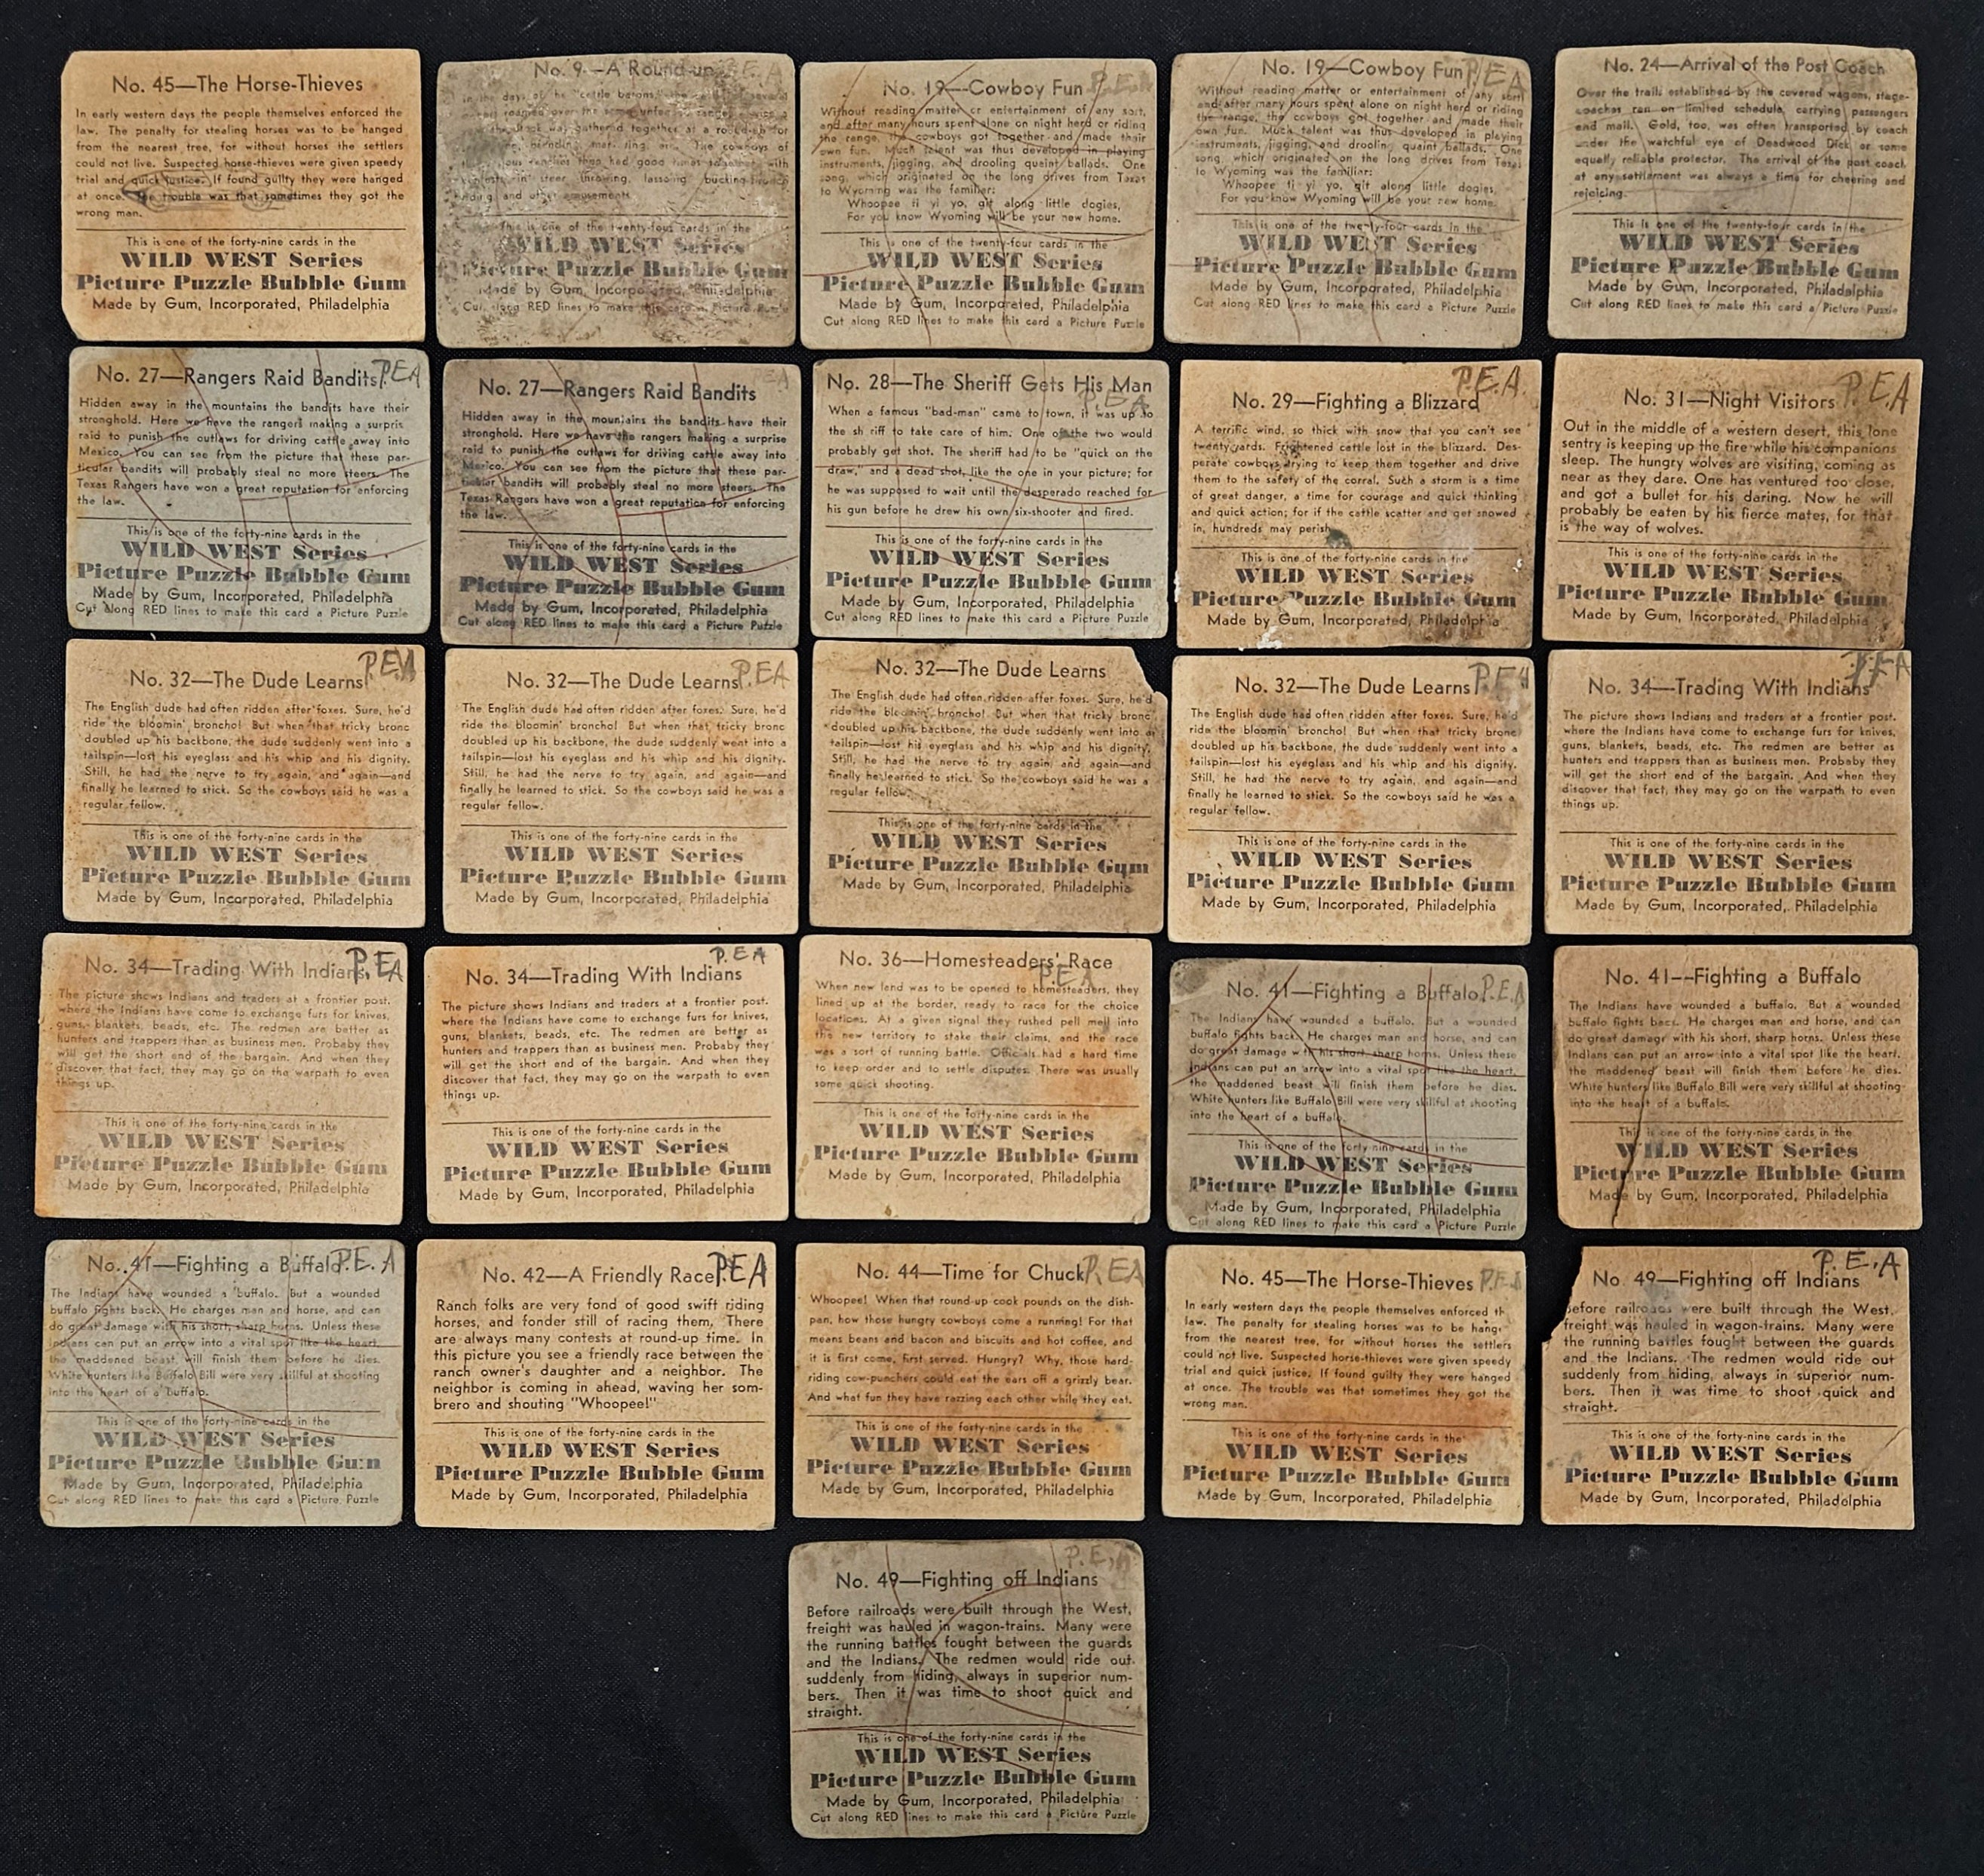 No. 45—The Horse-Thieves
In early western days the people themselves enforced the
law. The penalty for stealing horses was to be hanged
from the nearest tree, for without horses the settlers
could not live. Suspected horse-thieves were given speedy
trial and quick justice. If found guilty they were hanged
at once. The trouble was that sometimes they got the
wrong man.
This is one of the forty-nine cards in the
WILD WEST Series
Picture Puzzle Bubble Gum
Made by Gum, Incorporated, Philadelphia
No. 9—A Round-up
E. A
In the days of the "cattle barons,"
roamed over the
gathered together at a round-up for
branding, The cowboys of
had good times together with
in steer throwing, lassoing, bucking-bronch
riding and other amusements.
This is one of the twenty-four cards in the
WILD WEST Series
Picture Puzzle Bubble Gum
Made by Gum, Incorporated, Philadelphia
Cut along RED lines to make this card a Picture Puzzle
No. 19—Cowboy Fun
P.E.A
Without reading matter or entertainment of any sort,
and after many hours spent alone on night herd or riding
the range, the cowboys got together and made their
own fun. Much talent was thus developed in playing
instruments, jigging, and drooling quaint ballads. One
song, which originated on the long drives from Texas
to Wyoming was the familiar:
Whoopee ti yi yo, git along little dogies,
For you know Wyoming will be your new home.
This is one of the twenty-four cards in the
WILD WEST Series
Picture Puzzle Bubble Gum
Made by Gum, Incorporated, Philadelphia
Cut along RED lines to make this card a Picture Puzzle
No. 19—Cowboy Fun
P.E A
Without reading matter or entertainment of any sort
and after many hours spent alone on night herd or riding
the range, the cowboys got together and made their
own fun. Much talent was thus developed in playing
instruments, jigging, and drooling quaint ballads. One
song, which originated on the long drives from Texas
to Wyoming was the familiar:
Whoopee ti yi yo, git along little dogies,
For you know Wyoming will be your new home.
This is one of the twenty-four cards in the
WILD WEST Series
Picture Puzzle Bubble Gum
Made by Gum, Incorporated, Philadelphia
Cut along RED lines to make this card a Picture Puzzle
No. 24—Arrival of the Post Coach
Over the trails established by the covered wagons, stage-
coaches ran on limited schedule, carrying passengers
and mail. Gold, too, was often transported by coach
under the watchful eye of Deadwood Dick or some
equally reliable protector. The arrival of the post coach
at any settlement was always a time for cheering and
rejoicing.
This is one of the twenty-four cards in the
WILD WEST Series
Picture Puzzle Bubble Gum
Made by Gum, Incorporated, Philadelphia
Cut along RED lines to make this card a Picture Puzzle
No. 27—Rangers Raid Bandits
P.EA
Hidden away in the mountains the bandits have their
stronghold. Here we have the rangers making a surpris
raid to punish the outlaws for driving cattle away into
Mexico. You can see from the picture that these par-
ticular bandits will probably steal no more steers. The
Texas Rangers have won a great reputation for enforcing
the law.
This is one of the forty-nine cards in the
WILD WEST Series
Picture Puzzle Bubble Gum
Made by Gum, Incorporated, Philadelphia
Cut along RED lines to make this card a Picture Puzzle
No. 27—Rangers Raid Bandits
Hidden away in the mountains the bandits have their
stronghold. Here we have the rangers making a surprise
raid to punish the outlaws for driving cattle away into
Mexico. You can see from the picture that these par-
ticular bandits will probably steal no more steers. The
Texas Rangers have won a great reputation for enforcing
the law.
This is one of the forty-nine cards in the
WILD WEST Series
Picture Puzzle Bubble Gum
Made by Gum, Incorporated, Philadelphia
Cut along RED lines to make this card a Picture Puzzle
No. 28—The Sheriff Gets His Man
P.E.A
When a famous "bad-man" came to town, it was up to
the sh riff to take care of him. One of the two would
probably get shot. The sheriff had to be "quick on the
draw," and a dead shot, like the one in your picture; for
he was supposed to wait until the desperado reached for
his gun before he drew his own six-shooter and fired.
This is one of the forty-nine cards in the
WILD WEST Series
Picture Puzzle Bubble Gum
Made by Gum, Incorporated, Philadelphia
Cut along RED lines to make this card a Picture Puzzle
P.E.A.
No. 29—Fighting a Blizzard
A terrific wind, so thick with snow that you can't see
twenty yards. Frightened cattle lost in the blizzard. Des-
perate cowboys trying to keep them together and drive
them to the safety of the corral. Such a storm is a time
of great danger, a time for courage and quick thinking
and quick action; for if the cattle scatter and get snowed
in, hundreds may perish.
This is one of the forty-nine cards in the
WILD WEST Series
Picture Puzzle Bubble Gum
Made by Gum, Incorporated, Philadelphia
No. 31—Night Visitors
P.E.A
Out in the middle of a western desert, this lone
sentry is keeping up the fire while his companions
sleep. The hungry wolves are visiting, coming as
near as they dare. One has ventured too close,
and got a bullet for his daring. Now he will
probably be eaten by his fierce mates, for that
is the way of wolves.
This is one of the forty-nine cards in the
WILD WEST Series
Picture Puzzle Bubble Gum
Made by Gum, Incorporated, Philadelphia
No. 32—The Dude Learns
P.E.A
The English dude had often ridden after foxes. Sure, he'd
ride the bloomin' broncho! But when that tricky bronc
doubled up his backbone, the dude suddenly went into a
tailspin—lost his eyeglass and his whip and his dignity.
Still, he had the nerve to try again, and again—and
finally he learned to stick. So the cowboys said he was a
regular fellow.
This is one of the forty-nine cards in the
WILD WEST Series
Picture Puzzle Bubble Gum
Made by Gum, Incorporated, Philadelphia
No. 32—The Dude Learns
P.EA
The English dude had often ridden after foxes. Sure, he'd
ride the bloomin' broncho! But when that tricky bronc
doubled up his backbone, the dude suddenly went into a
tailspin—lost his eyeglass and his whip and his dignity.
Still, he had the nerve to try again, and again—and
finally he learned to stick. So the cowboys said he was a
regular fellow.
This is one of the forty-nine cards in the
WILD WEST Series
Picture Puzzle Bubble Gum
Made by Gum, Incorporated, Philadelphia
No. 32—The Dude Learns
The English dude had often ridden after foxes. Sure, he'd
ride the bloomin' broncho! But when that tricky bronc
doubled up his backbone, the dude suddenly went into a
tailspin—lost his eyeglass and his whip and his dignity.
Still, he had the nerve to try again, and again—and
finally he learned to stick. So the cowboys said he was a
regular fellow.
This is one of the forty-nine cards in the
WILD WEST Series
Picture Puzzle Bubble Gum
Made by Gum, Incorporated, Philadelphia
No. 32—The Dude Learns
P.E
The English dude had often ridden after foxes. Sure, he'd
ride the bloomin' broncho! But when that tricky bronc
doubled up his backbone, the dude suddenly went into a
tailspin—lost his eyeglass and his whip and his dignity.
Still, he had the nerve to try again, and again—and
finally he learned to stick. So the cowboys said he was a
regular fellow.
This is one of the forty-nine cards in the
WILD WEST Series
Picture Puzzle Bubble Gum
Made by Gum, Incorporated, Philadelphia
No. 34—Trading With Indians
The picture shows Indians and traders at a frontier post.
where the Indians have come to exchange furs for knives,
guns, blankets, beads, etc. The redmen are better as
hunters and trappers than as business men. Probaby they
will get the short end of the bargain. And when they
discover that fact, they may go on the warpath to even
things up.
This is one of the forty-nine cards in the
WILD WEST Series
Picture Puzzle Bubble Gum
Made by Gum, Incorporated, Philadelphia
No. 34—Trading With Indians
P.EA
The picture shows Indians and traders at a frontier post.
where the Indians have come to exchange furs for knives,
guns, blankets, beads, etc. The redmen are better as
hunters and trappers than as business men. Probaby they
will get the short end of the bargain. And when they
discover that fact, they may go on the warpath to even
things up.
This is one of the forty-nine cards in the
WILD WEST Series
Picture Puzzle Bubble Gum
Made by Gum, Incorporated, Philadelphia
P.EA
No. 34—Trading With Indians
The picture shows Indians and traders at a frontier post.
where the Indians have come to exchange furs for knives,
guns, blankets, beads, etc. The redmen are better as
hunters and trappers than as business men. Probaby they
will get the short end of the bargain. And when they
discover that fact, they may go on the warpath to even
things up.
This is one of the forty-nine cards in the
WILD WEST Series
Picture Puzzle Bubble Gum
Made by Gum, Incorporated, Philadelphia
No. 36—Homesteaders' Race
P.E.A
When new land was to be opened to homesteaders, they
lined up at the border, ready to race for the choice
locations. At a given signal they rushed pell mell into
the new territory to stake their claims, and the race
was a sort of running battle. Officials had a hard time
to keep order and to settle disputes. There was usually
some quick shooting.
This is one of the forty-nine cards in the
WILD WEST Series
Picture Puzzle Bubble Gum
Made by Gum, Incorporated, Philadelphia
No. 41—Fighting a Buffalo
P.E.A
The Indians have wounded a buffalo. But a wounded
buffalo fights back. He charges man and horse, and can
do great damage with his short, sharp horns. Unless these
Indians can put an arrow into a vital spot like the heart,
the maddened beast will finish them before he dies.
White hunters like Buffalo Bill were very skillful at shooting
into the heart of a buffalo.
This is one of the forty-nine cards in the
WILD WEST Series
Picture Puzzle Bubble Gum
Made by Gum, Incorporated, Philadelphia
Cut along RED lines to make this card a Picture Puzzle
No. 41—Fighting a Buffalo
The Indians have wounded a buffalo. But a wounded
buffalo fights back. He charges man and horse, and can
do great damage with his short, sharp horns. Unless these
Indians can put an arrow into a vital spot like the heart,
the maddened beast will finish them before he dies.
White hunters like Buffalo Bill were very skillful at shooting
into the heart of a buffalo.
This is one of the forty-nine cards in the
WILD WEST Series
Picture Puzzle Bubble Gum
Made by Gum, Incorporated, Philadelphia
No. 41—Fighting a Buffalo
P.E. A
The Indians have wounded a buffalo. But a wounded
buffalo fights back. He charges man and horse, and can
do great damage with his short, sharp horns. Unless these
Indians can put an arrow into a vital spot like the heart,
the maddened beast will finish them before he dies.
White hunters like Buffalo Bill were very skillful at shooting
into the heart of a buffalo.
This is one of the forty-nine cards in the
WILD WEST Series
Picture Puzzle Bubble Gum
Made by Gum, Incorporated, Philadelphia
Cut along RED lines to make this card a Picture Puzzle
No. 42—A Friendly Race
P.EA
Ranch folks are very fond of good swift riding
horses, and fonder still of racing them. There
are always many contests at round-up time. In
this picture you see a friendly race between the
ranch owner's daughter and a neighbor. The
neighbor is coming in ahead, waving her som-
brero and shouting "Whoopee!"
This is one of the forty-nine cards in the
WILD WEST Series
Picture Puzzle Bubble Gum
Made by Gum, Incorporated, Philadelphia
No. 44—Time for Chuck
P. EA
Whoopee! When that round-up cook pounds on the dish-
pan, how those hungry cowboys come a running! For that
means beans and bacon and biscuits and hot coffee, and
it is first come, first served. Hungry? Why, those hard-
riding cow-punchers could eat the ears off a grizzly bear.
And what fun they have razzing each other while they eat.
This is one of the forty-nine cards in the
WILD WEST Series
Picture Puzzle Bubble Gum
Made by Gum, Incorporated, Philadelphia
No. 45—The Horse-Thieves
P.E.A
In early western days the people themselves enforced th
law. The penalty for stealing horses was to be hange
from the nearest tree, for without horses the settlers
could not live. Suspected horse-thieves were given speedy
trial and quick justice. If found guilty they were hanged
at once. The trouble was that sometimes they got the
wrong man.
This is one of the forty-nine cards in the
WILD WEST Series
Picture Puzzle Bubble Gum
Made by Gum, Incorporated, Philadelphia
P.E.A
No. 49—Fighting off Indians
Before railroads were built through the West,
freight was hauled in wagon-trains. Many were
the running battles fought between the guards
and the Indians. The redmen would ride out
suddenly from hiding, always in superior num-
bers. Then it was time to shoot quick and
straight.
This is one of the forty-nine cards in the
WILD WEST Series
Picture Puzzle Bubble Gum
Made by Gum, Incorporated, Philadelphia
P.E.A
No. 49—Fighting off Indians
Before railroads were built through the West,
freight was hauled in wagon-trains. Many were
the running battles fought between the guards
and the Indians. The redmen would ride out
suddenly from hiding, always in superior num-
bers. Then it was time to shoot quick and
straight.
This is one of the forty-nine cards in the
WILD WEST Series
Picture Puzzle Bubble Gum
Made by Gum, Incorporated, Philadelphia
Cut along RED lines to make this card a Picture Puzzle